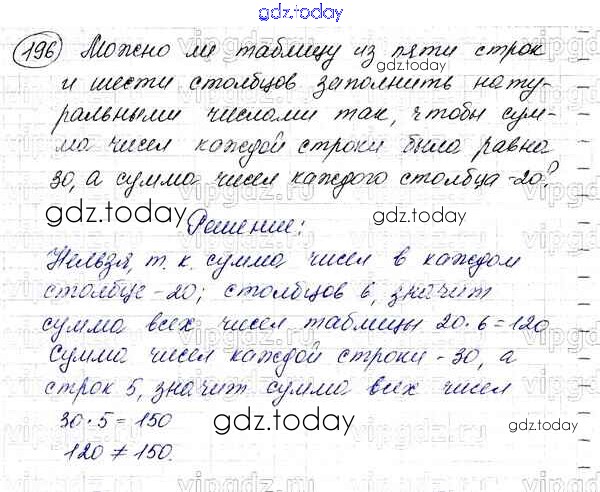 gdz.today
196 Можно ли таблицу из пяти строк
и шести столбцов заполнить нату-
ральными числами так, чтобы сум-
ма чисел каждой строки была равна
30, а сумма чисел каждого столбца -20?
gdz.today
gdz.today
Решение:
Нельзя, т. к. сумма чисел в каждом
столбце -20; столбцов 6, значит
сумма всех чисел таблицы 20·6=120
Сумма чисел каждой строки - 30, а
строк 5, значит сумма всех чисел
30·5=150
gdz.today
gdz.today
120 ≠ 150.